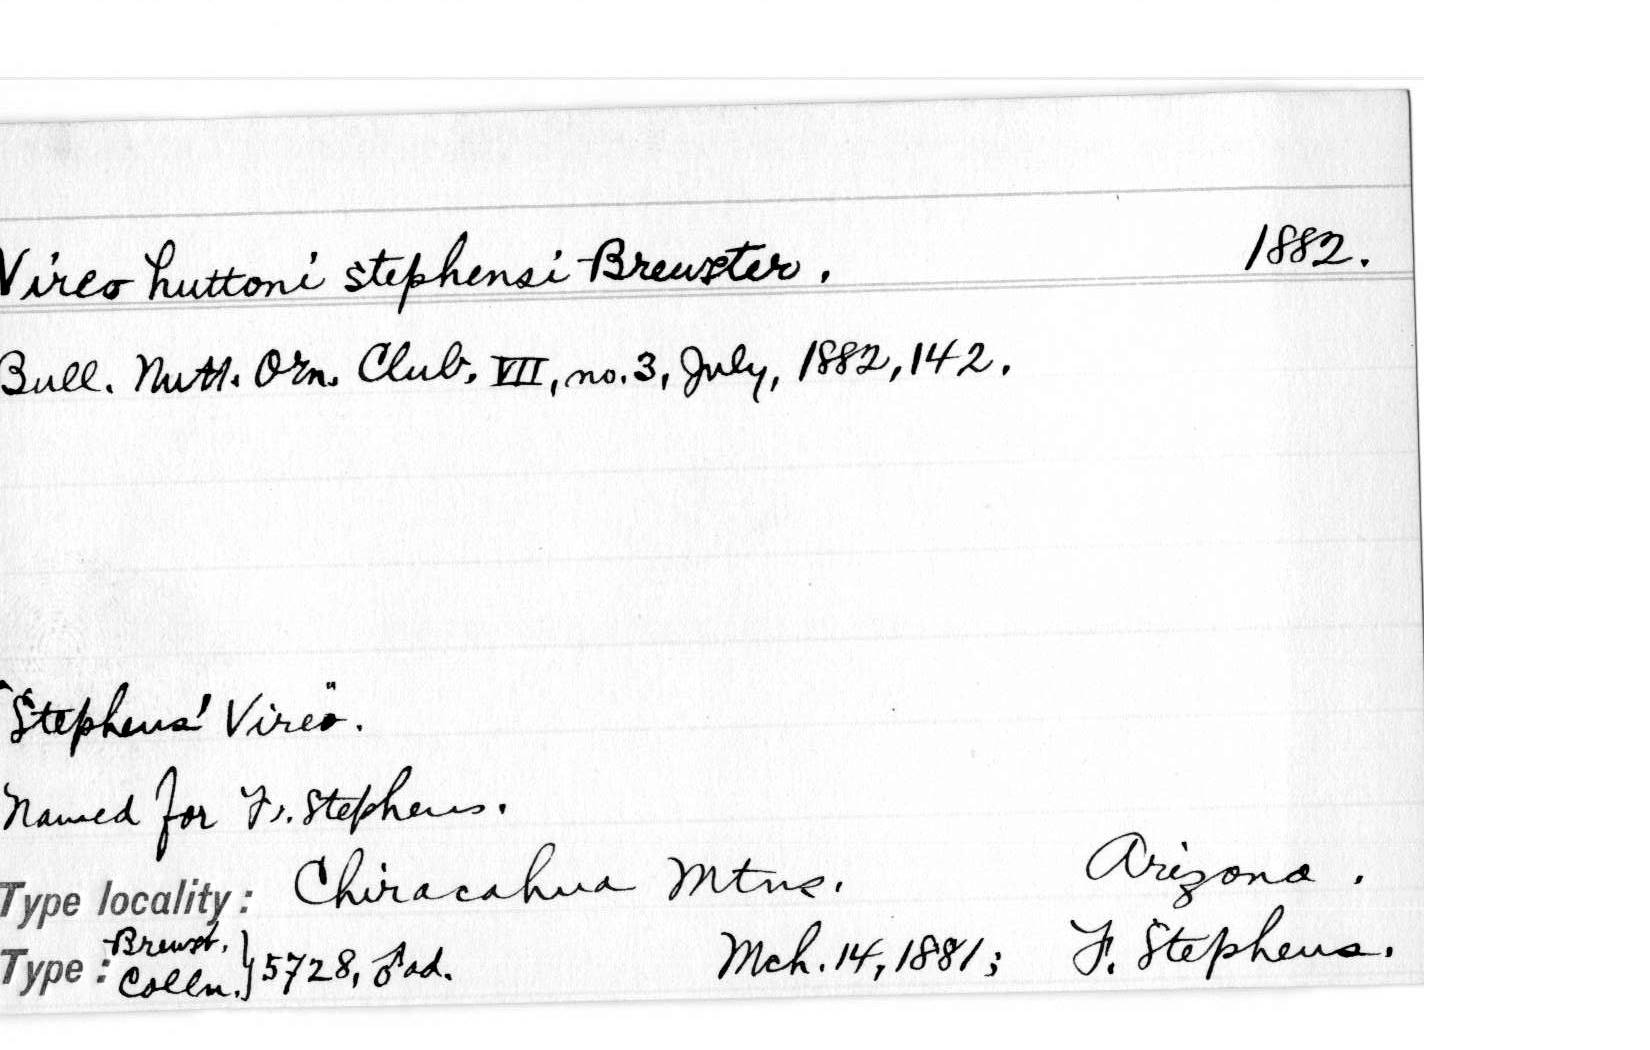 Vireo huttoni stephensi Brewster. 1882.
Bull. Nutt. Orn. Club, VII, no. 3, July, 1882, 142.
"Stephens' Vireo".
Named for F. Stephens.
Type locality: Chiracahua Mtns. Arizona.
Type: Brewst. Colln. } 5728, ♂ ad. Mch. 14, 1881; F. Stephens.